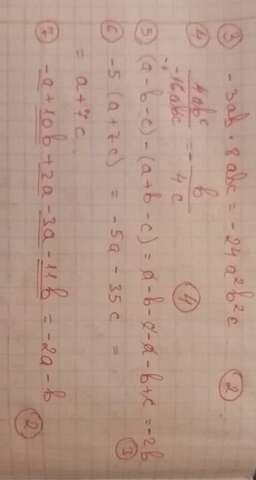 ③ -3ab · 8abc = -24a²b²c ②
④ 4ab² / -16abc = - b / 4c ④
⑤ (a-b-c) - (a+b-c) = a-b-c-a-b+c = -2b ②
⑥ -5(a+7c) = -5a - 35c =
= a+7c
⑦ -a+10b+2a-3a-11b = -2a-b ②